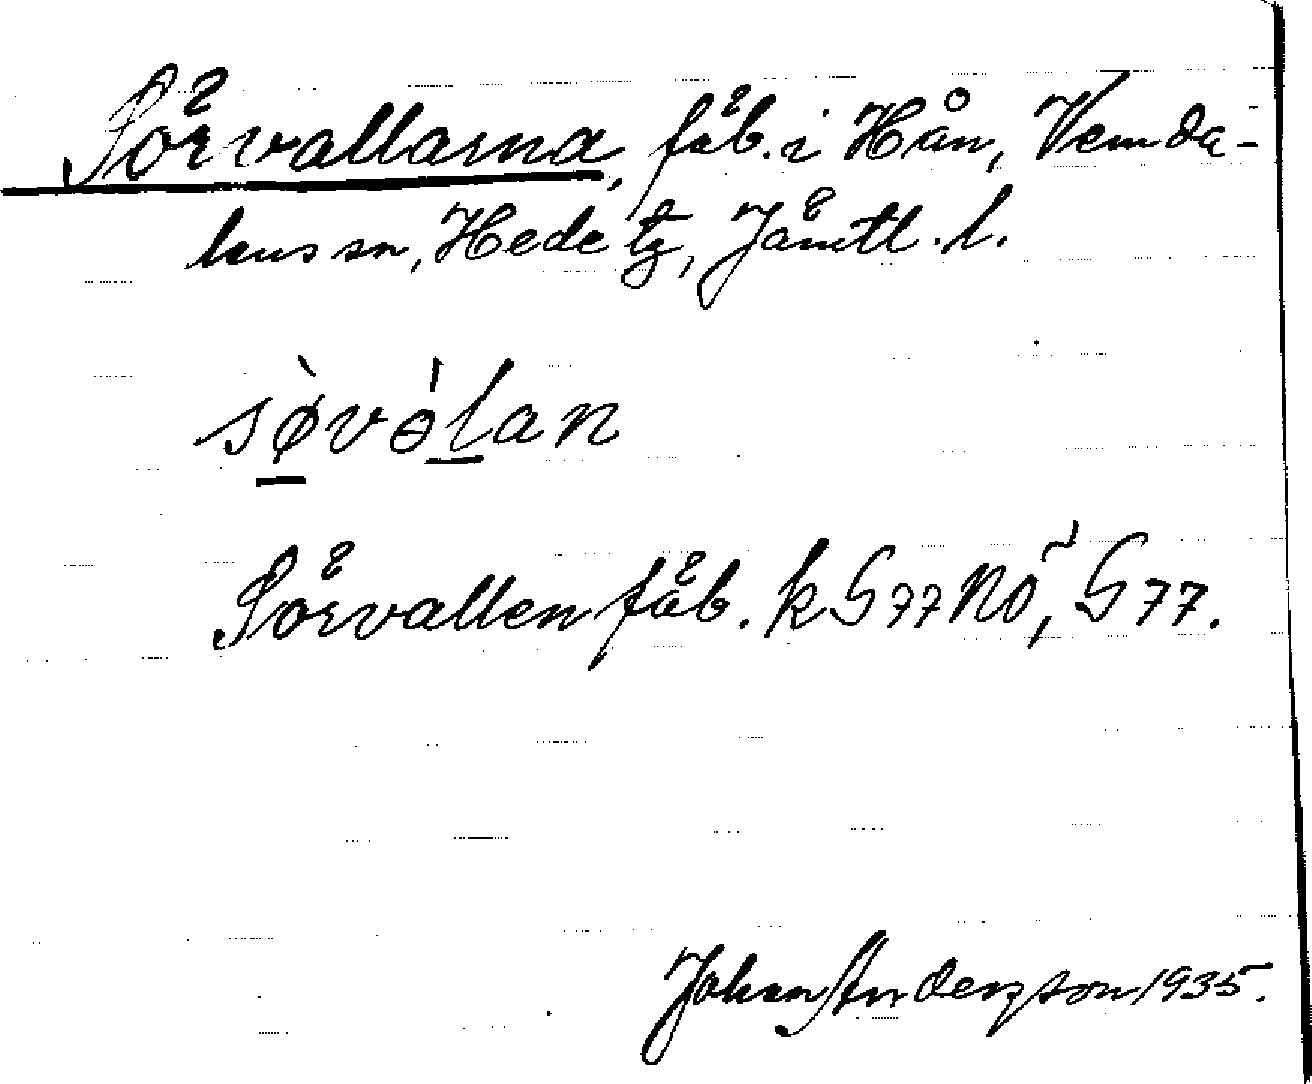 Sörvallarna, fäb. i Hån, Vemda-
lens sn, Hede tg, Jämtl. l.
sø̀vɵ́lan
Sörvallen fäb. k G77NÖ, G77.
Johan Anderzson 1935.